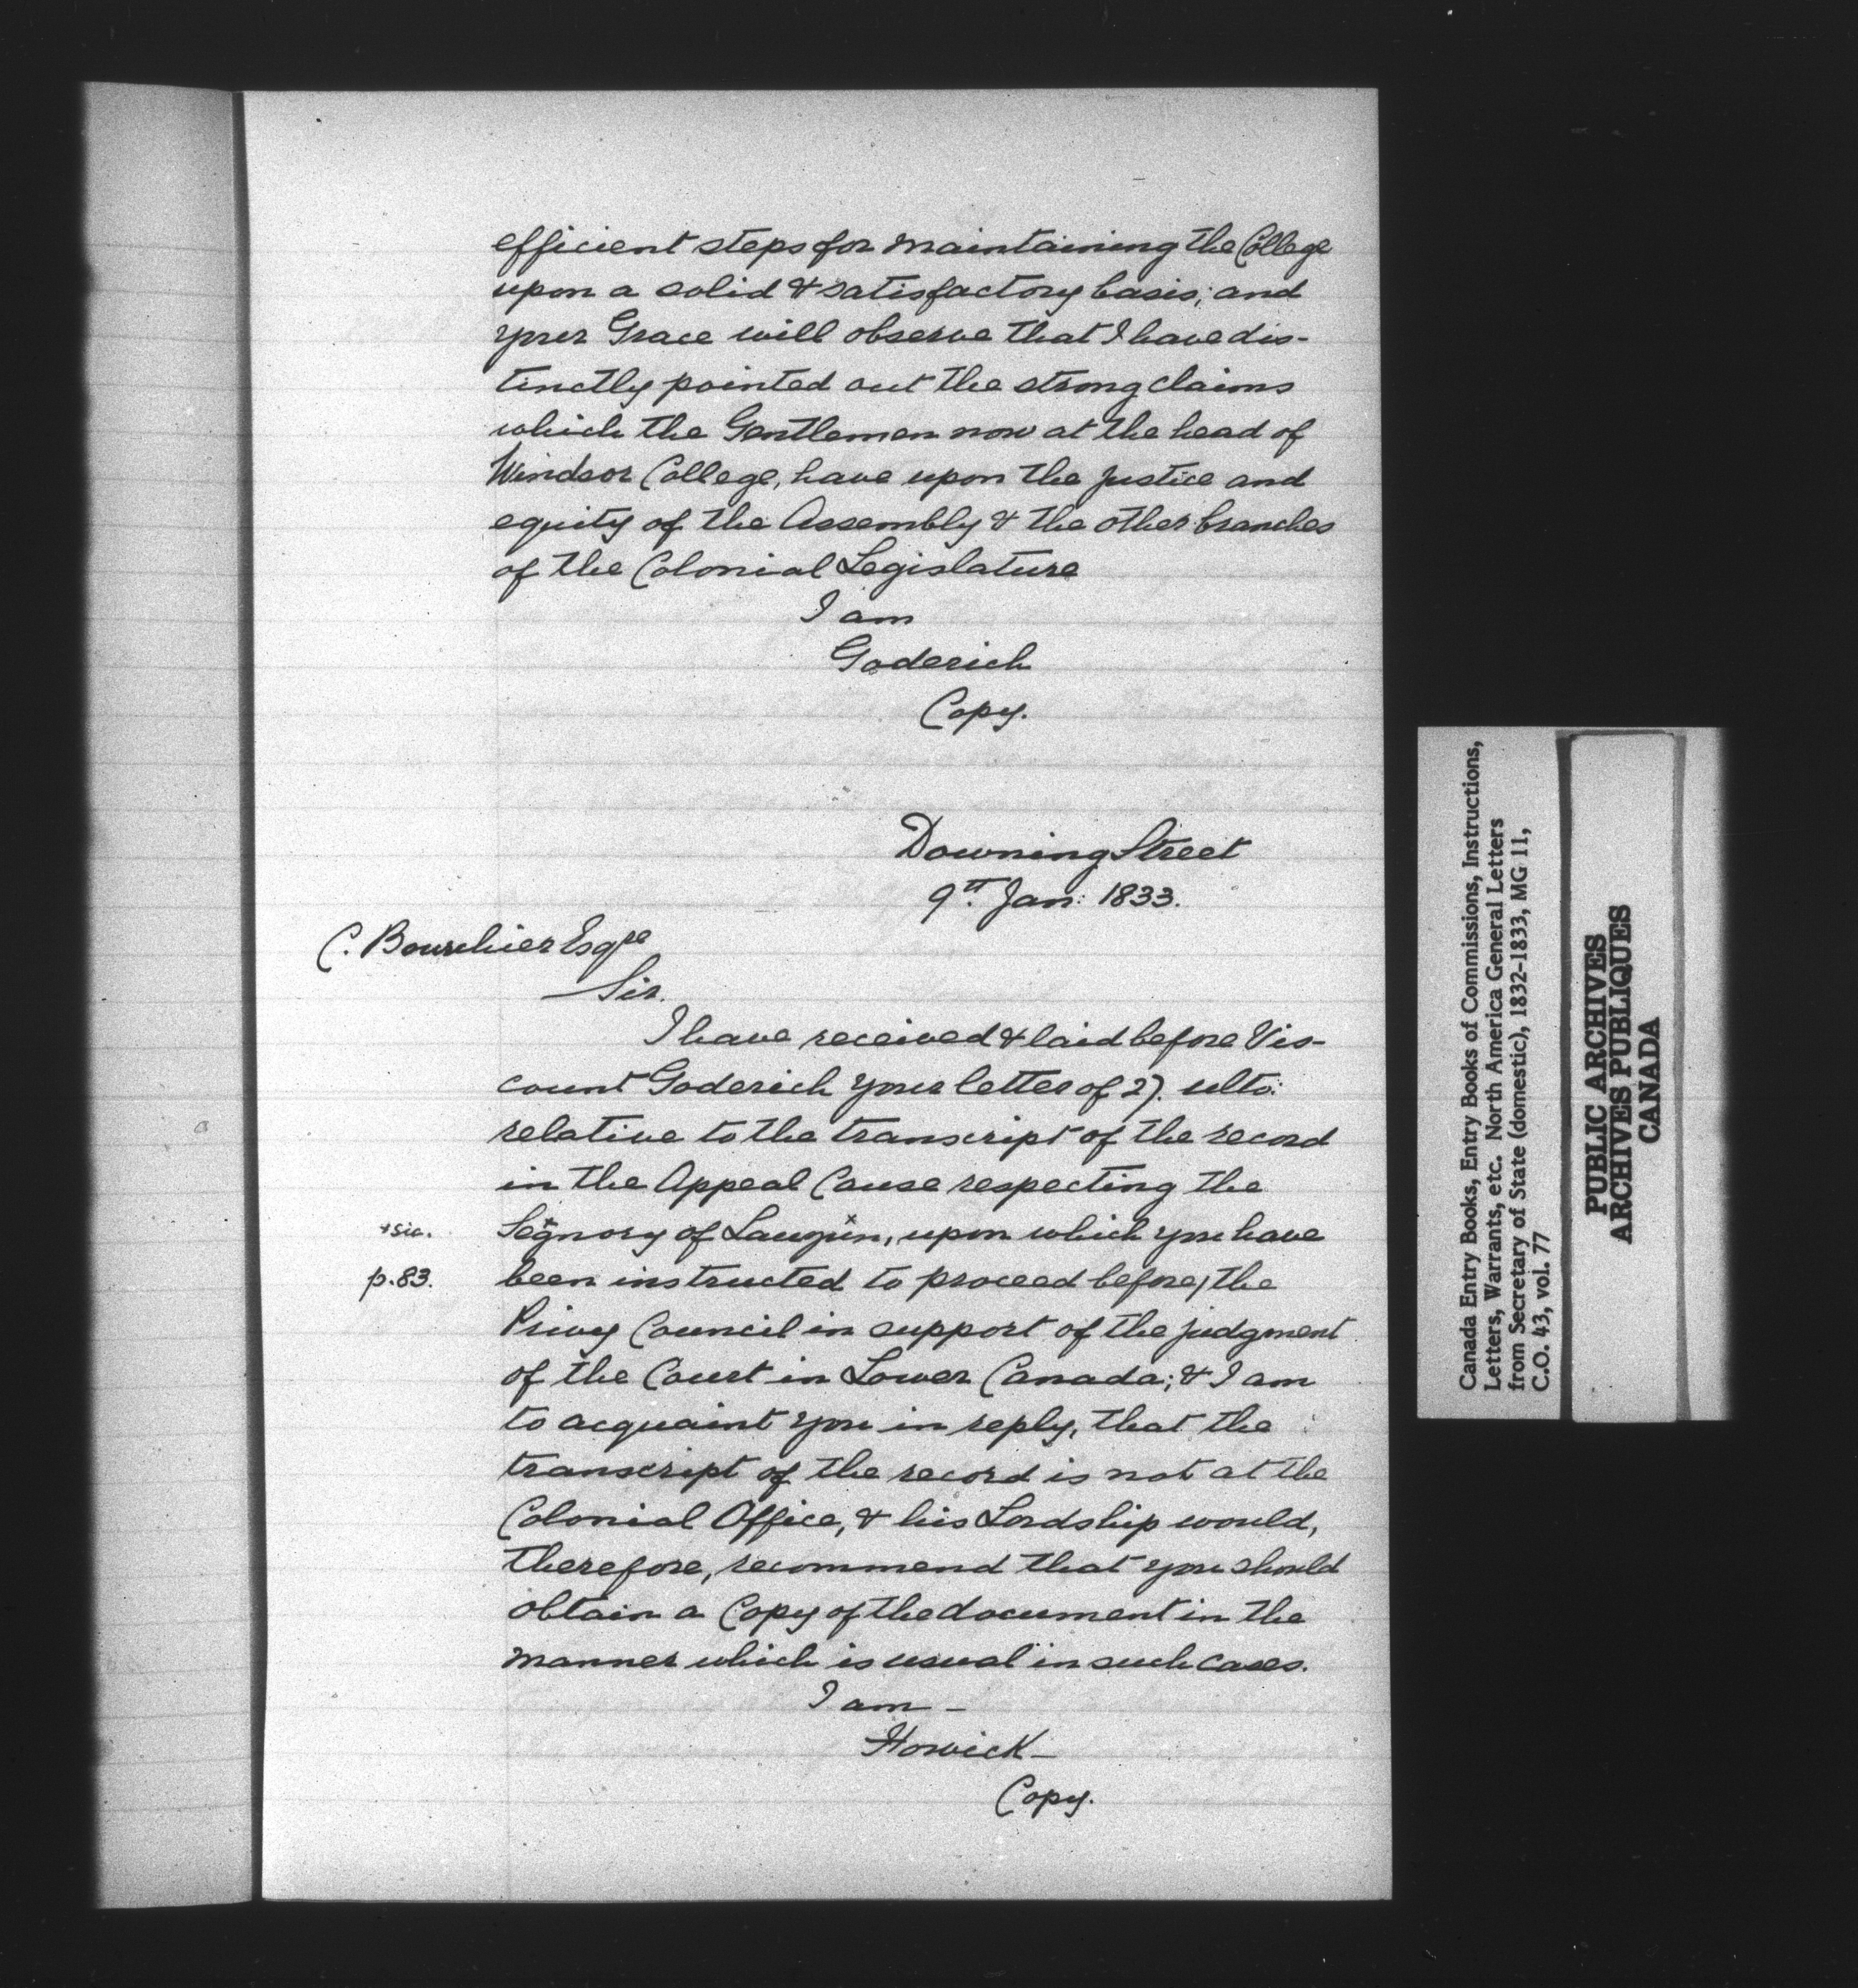 efficient steps for maintaining the College
upon a solid & satisfactory basis; and
your Grace will observe that I have dis-
tinctly pointed out the strong claims
which the Gentlemen now at the head of
Windsor College, have upon the justice and
equity of the Assembly & the other branches
of the Colonial Legislature
I am
Goderich
Copy.
Downing Street
9th Jan: 1833.
C. Bourchier Esqre
Sir.
I have received & laid before Vis-
count Goderich your letter of 27. ulto:
relative to the transcript of the record
in the Appeal Cause respecting the
+sic. Segnory of Lauzun, upon which you have
p.83. been instructed to proceed before/the
Privy Council in support of the judgment
of the Court in Lower Canada; & I am
to acquaint you in reply, that the
transcript of the record is not at the
Colonial Office, & his Lordship would,
therefore, recommend that you should
obtain a Copy of the document in the
manner which is usual in such cases.
I am -
Howick -
Copy.
Canada Entry Books, Entry Books of Commissions, Instructions,
Letters, Warrants, etc. North America General Letters
from Secretary of State (domestic), 1832-1833, MG 11,
C.O. 43, vol. 77
PUBLIC ARCHIVES
ARCHIVES PUBLIQUES
CANADA